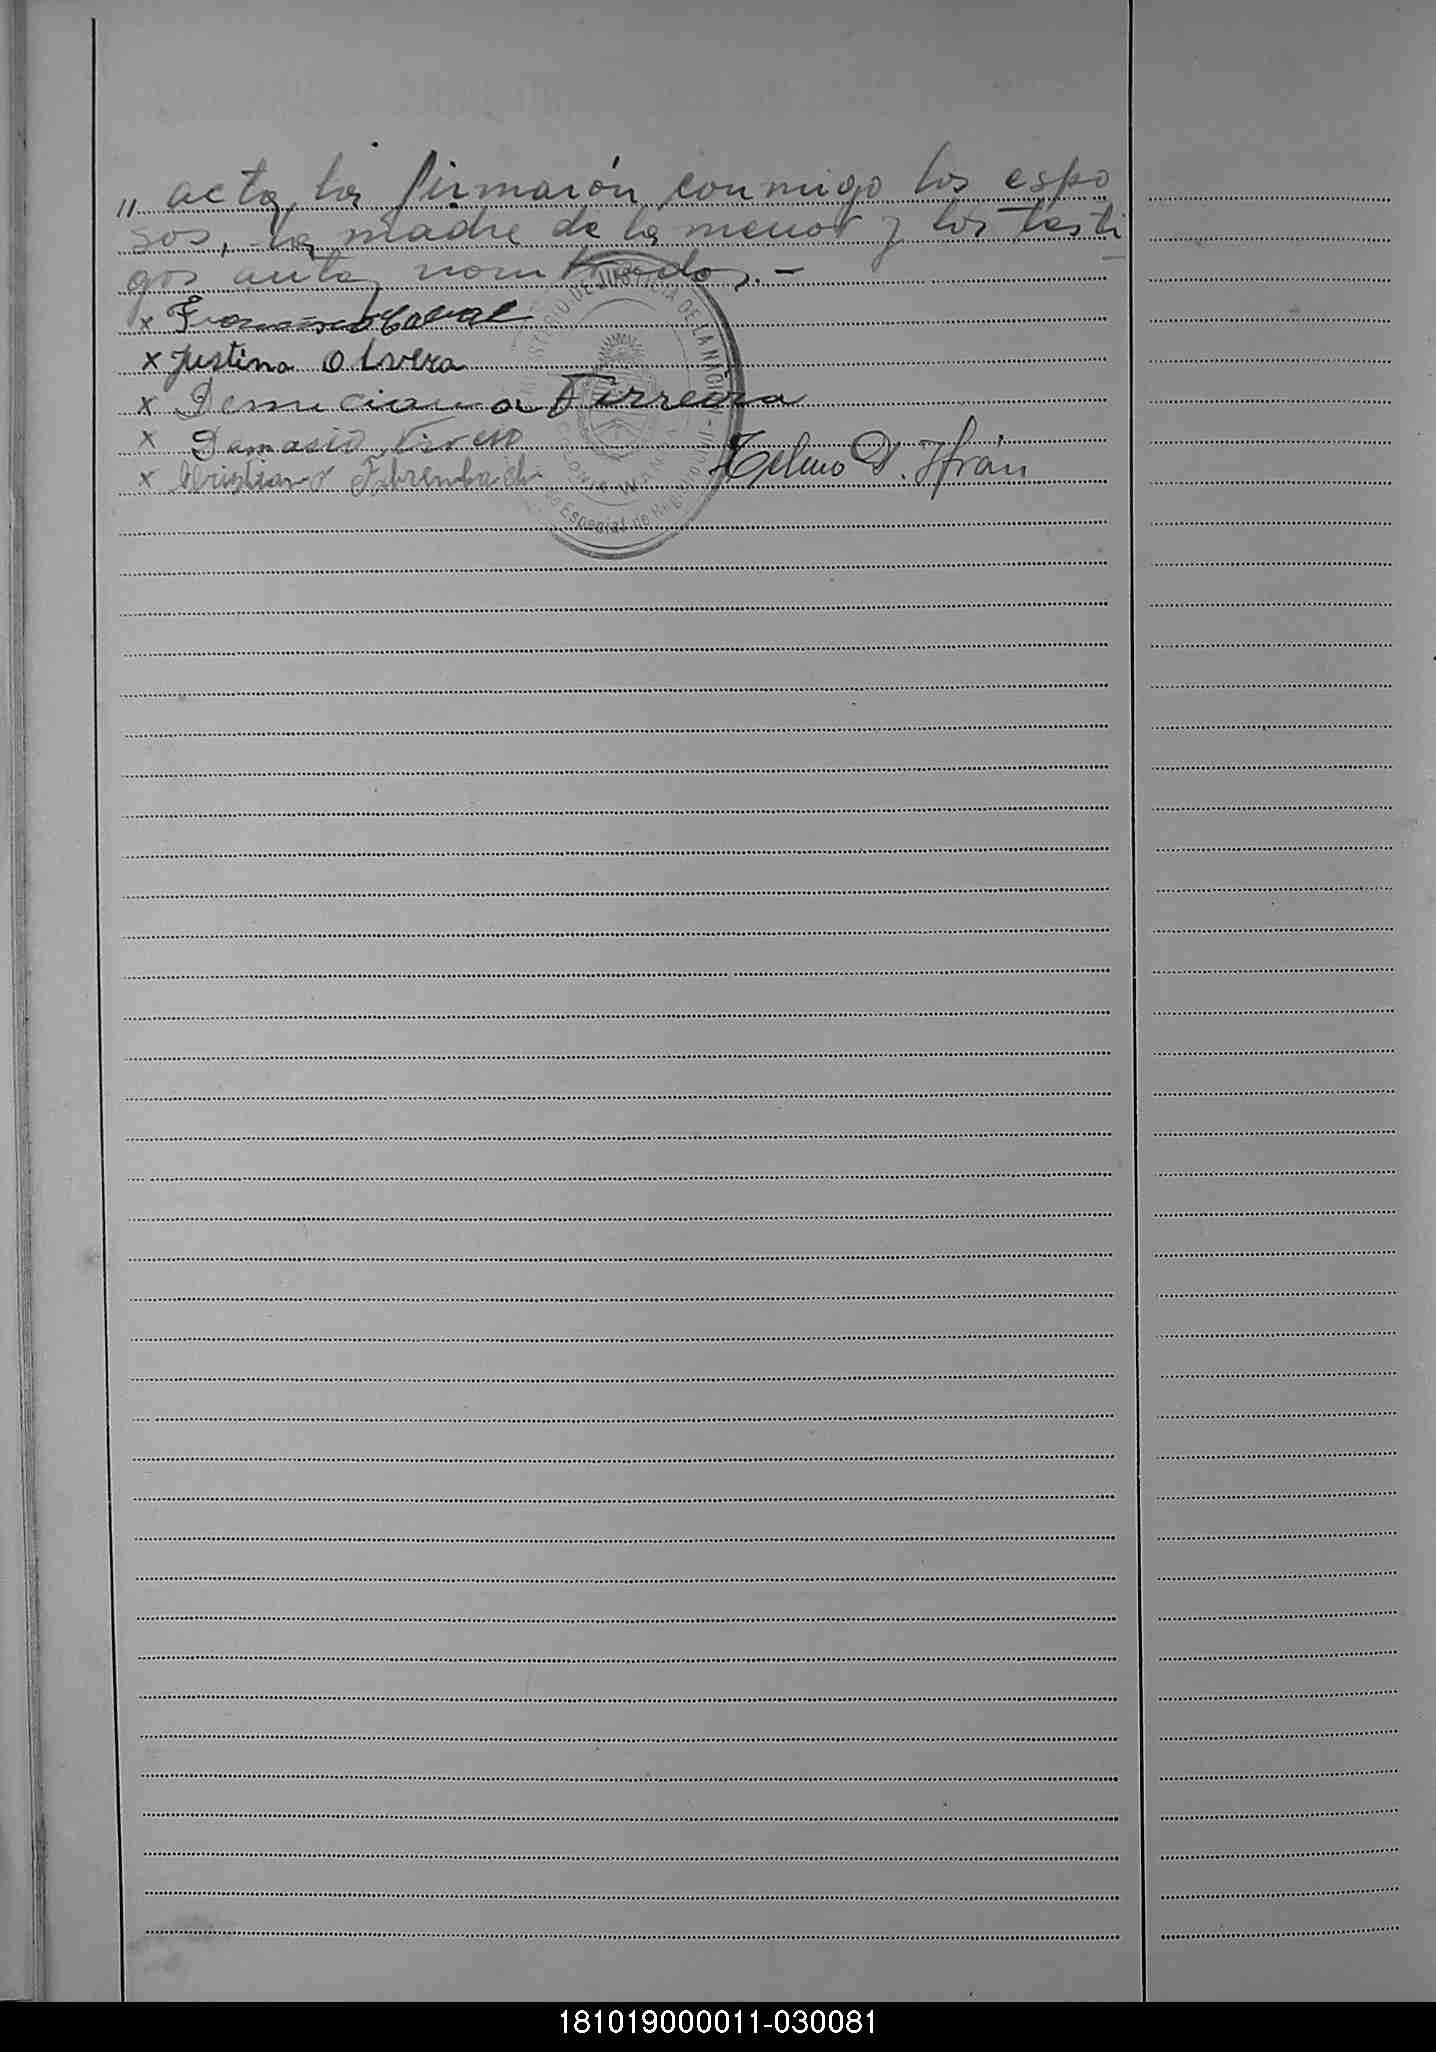 „ acta, la firmarón conmigo los espo
sos, la madre de la menor y los testi
gos antes nombrados.-
x Francisco Cabral
x Justina Olvera
x Ferreira
x Damacio
x Cristiano Fahrenbach
Telmo D. Ifrán
MINISTERIO DE JUSTICIA DE LA NACION
COLONIA
Especial de
181019000011-030081